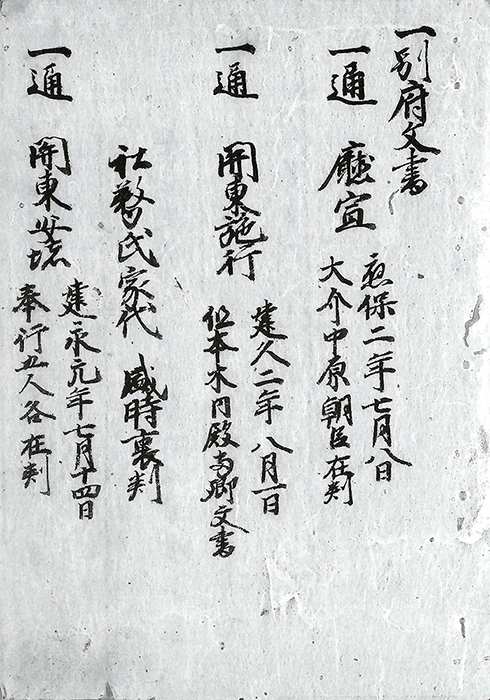 一別府文書
一通 廳宣 應保二年七月八日
大介中原朝臣在判
一通 関東施行 建久二年八月一日
但本木内殿 卿文書
社務氏家代 盛時裏判
一通 関東 建永元年七月十四日
奉行五人各在判